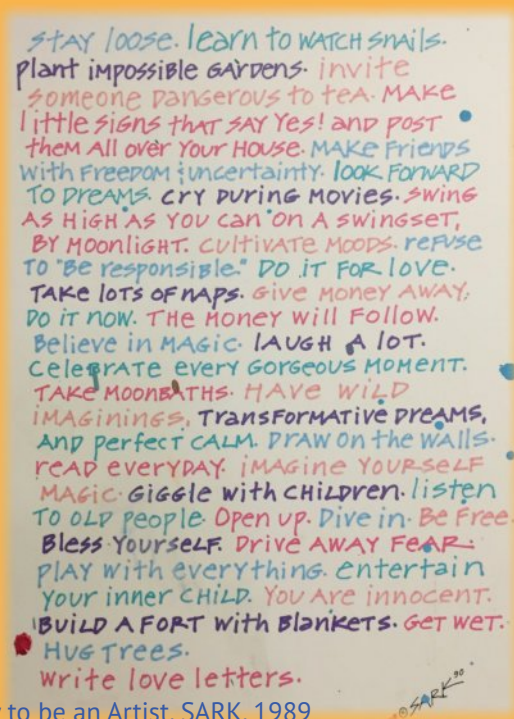 STAY loose. learn to WATCH SNAILS.
Plant IMPOSSIBLE GARDENS. invite
someone DANGEROUS to teA. MAKE
little SIGNS THAT SAY Yes! AND POST
them All over Your HOUSE. MAKE Friends
with FREEDOM & UNCERTAINTY. lOOK FORWARD
TO DREAMS. CRY DURING MOVIES. SWING
AS HIGH AS YOU CAN ON A SWINGSET,
BY MOONLIGHT. CULTIVATE MOODS. reFUSE
TO "Be responsible." DO iT FOR love.
TAKE lOTS OF NAPS. Give MONEY AWAY,
DO iT NOW. THE MONEY will FOLLOW.
Believe in MAGIC. lAUGH A lOT.
CeleBRATE every GORGEOUS MOMENT.
TAKE MOONBATHS. HAVE WILD
iMAGININGS, TRANSFORMATIVE DREAMS,
AND perfecT CALM. DRAW ON the WALLS.
reAD everyDAY. iMAGINE YOURSELF
MAGIC. GIGGLE with CHILDREN. listen
TO OLD people. Open up. Dive in. Be Free.
Bless Yourself. Drive AWAY FEAR.
PlAY with everyTHING. entertain
Your inner CHILD. You Are innocent.
BUILD A FORT with BlANKETS. GeT WeT.
HUG Trees.
Write love letters.
©SARK 90
to be an Artist, SARK, 1989